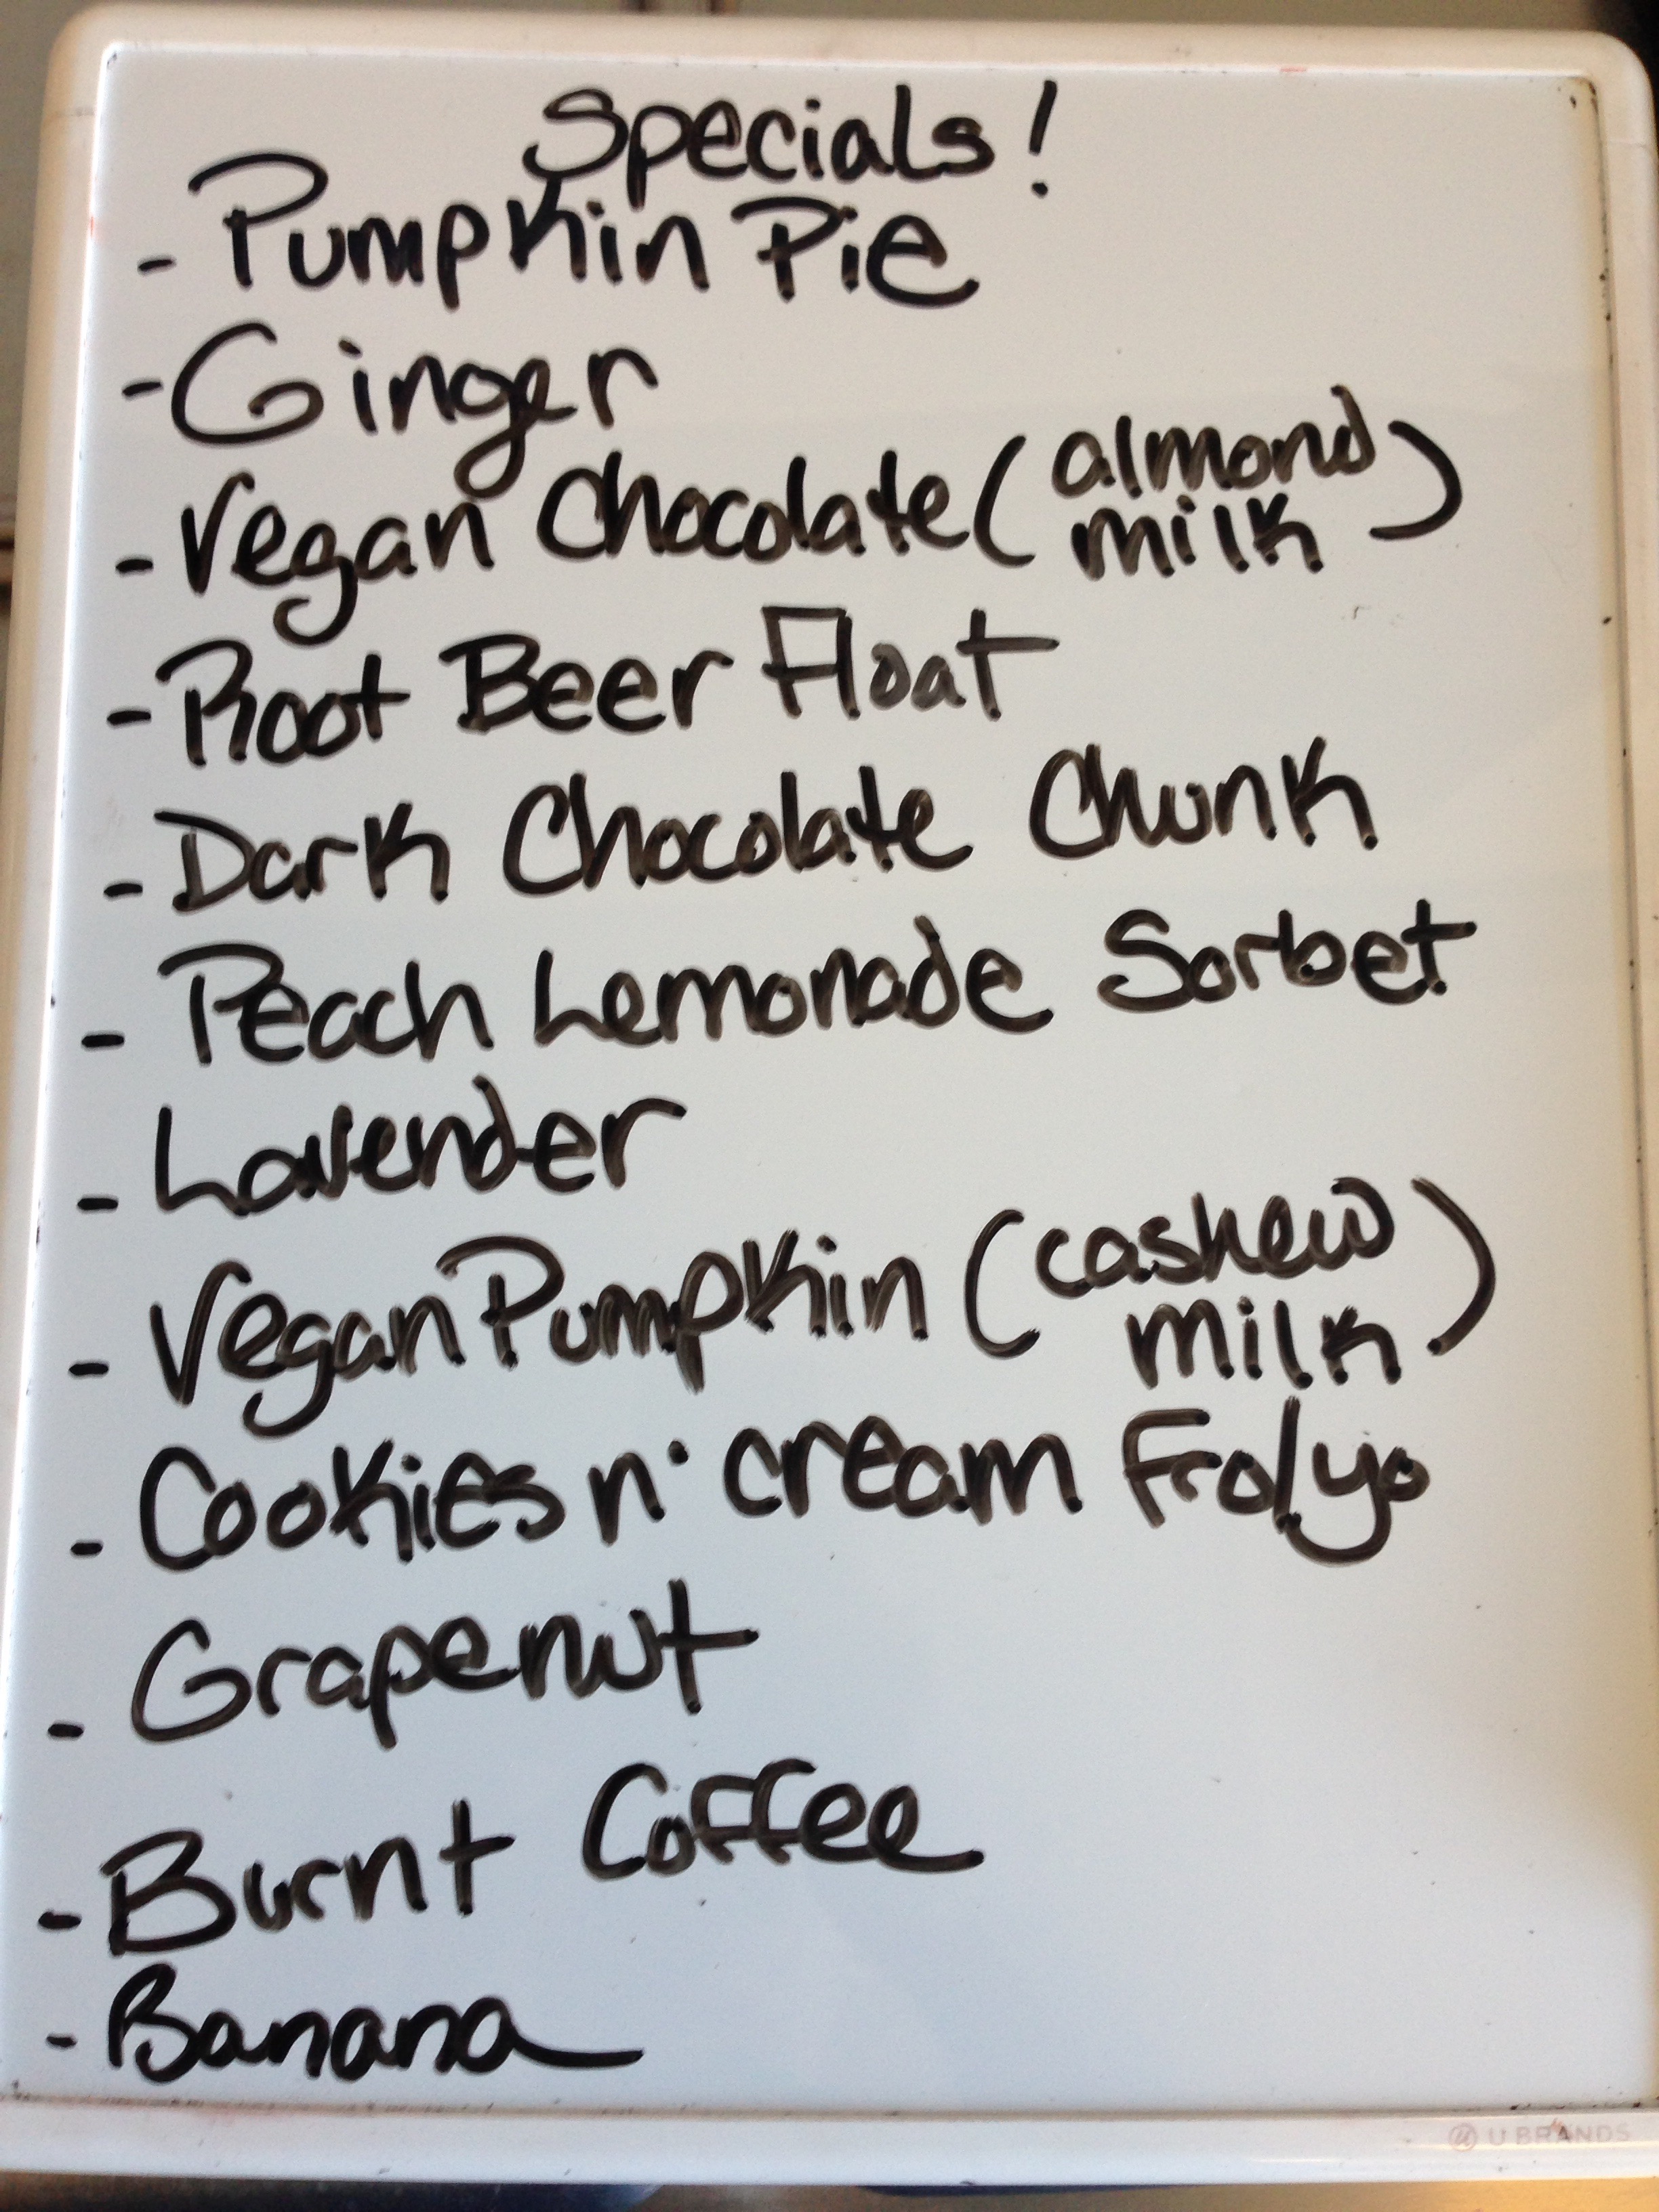 Specials!
- Pumpkin Pie
- Ginger
- Vegan Chocolate (almond milk)
- Root Beer Float
- Dark Chocolate Chunk
- Peach Lemonade Sorbet
- Lavender
- Vegan Pumpkin (cashew milk)
- Cookies n' cream Fro/yo
- Grapenut
- Burnt Coffee
- Banana
U BRANDS